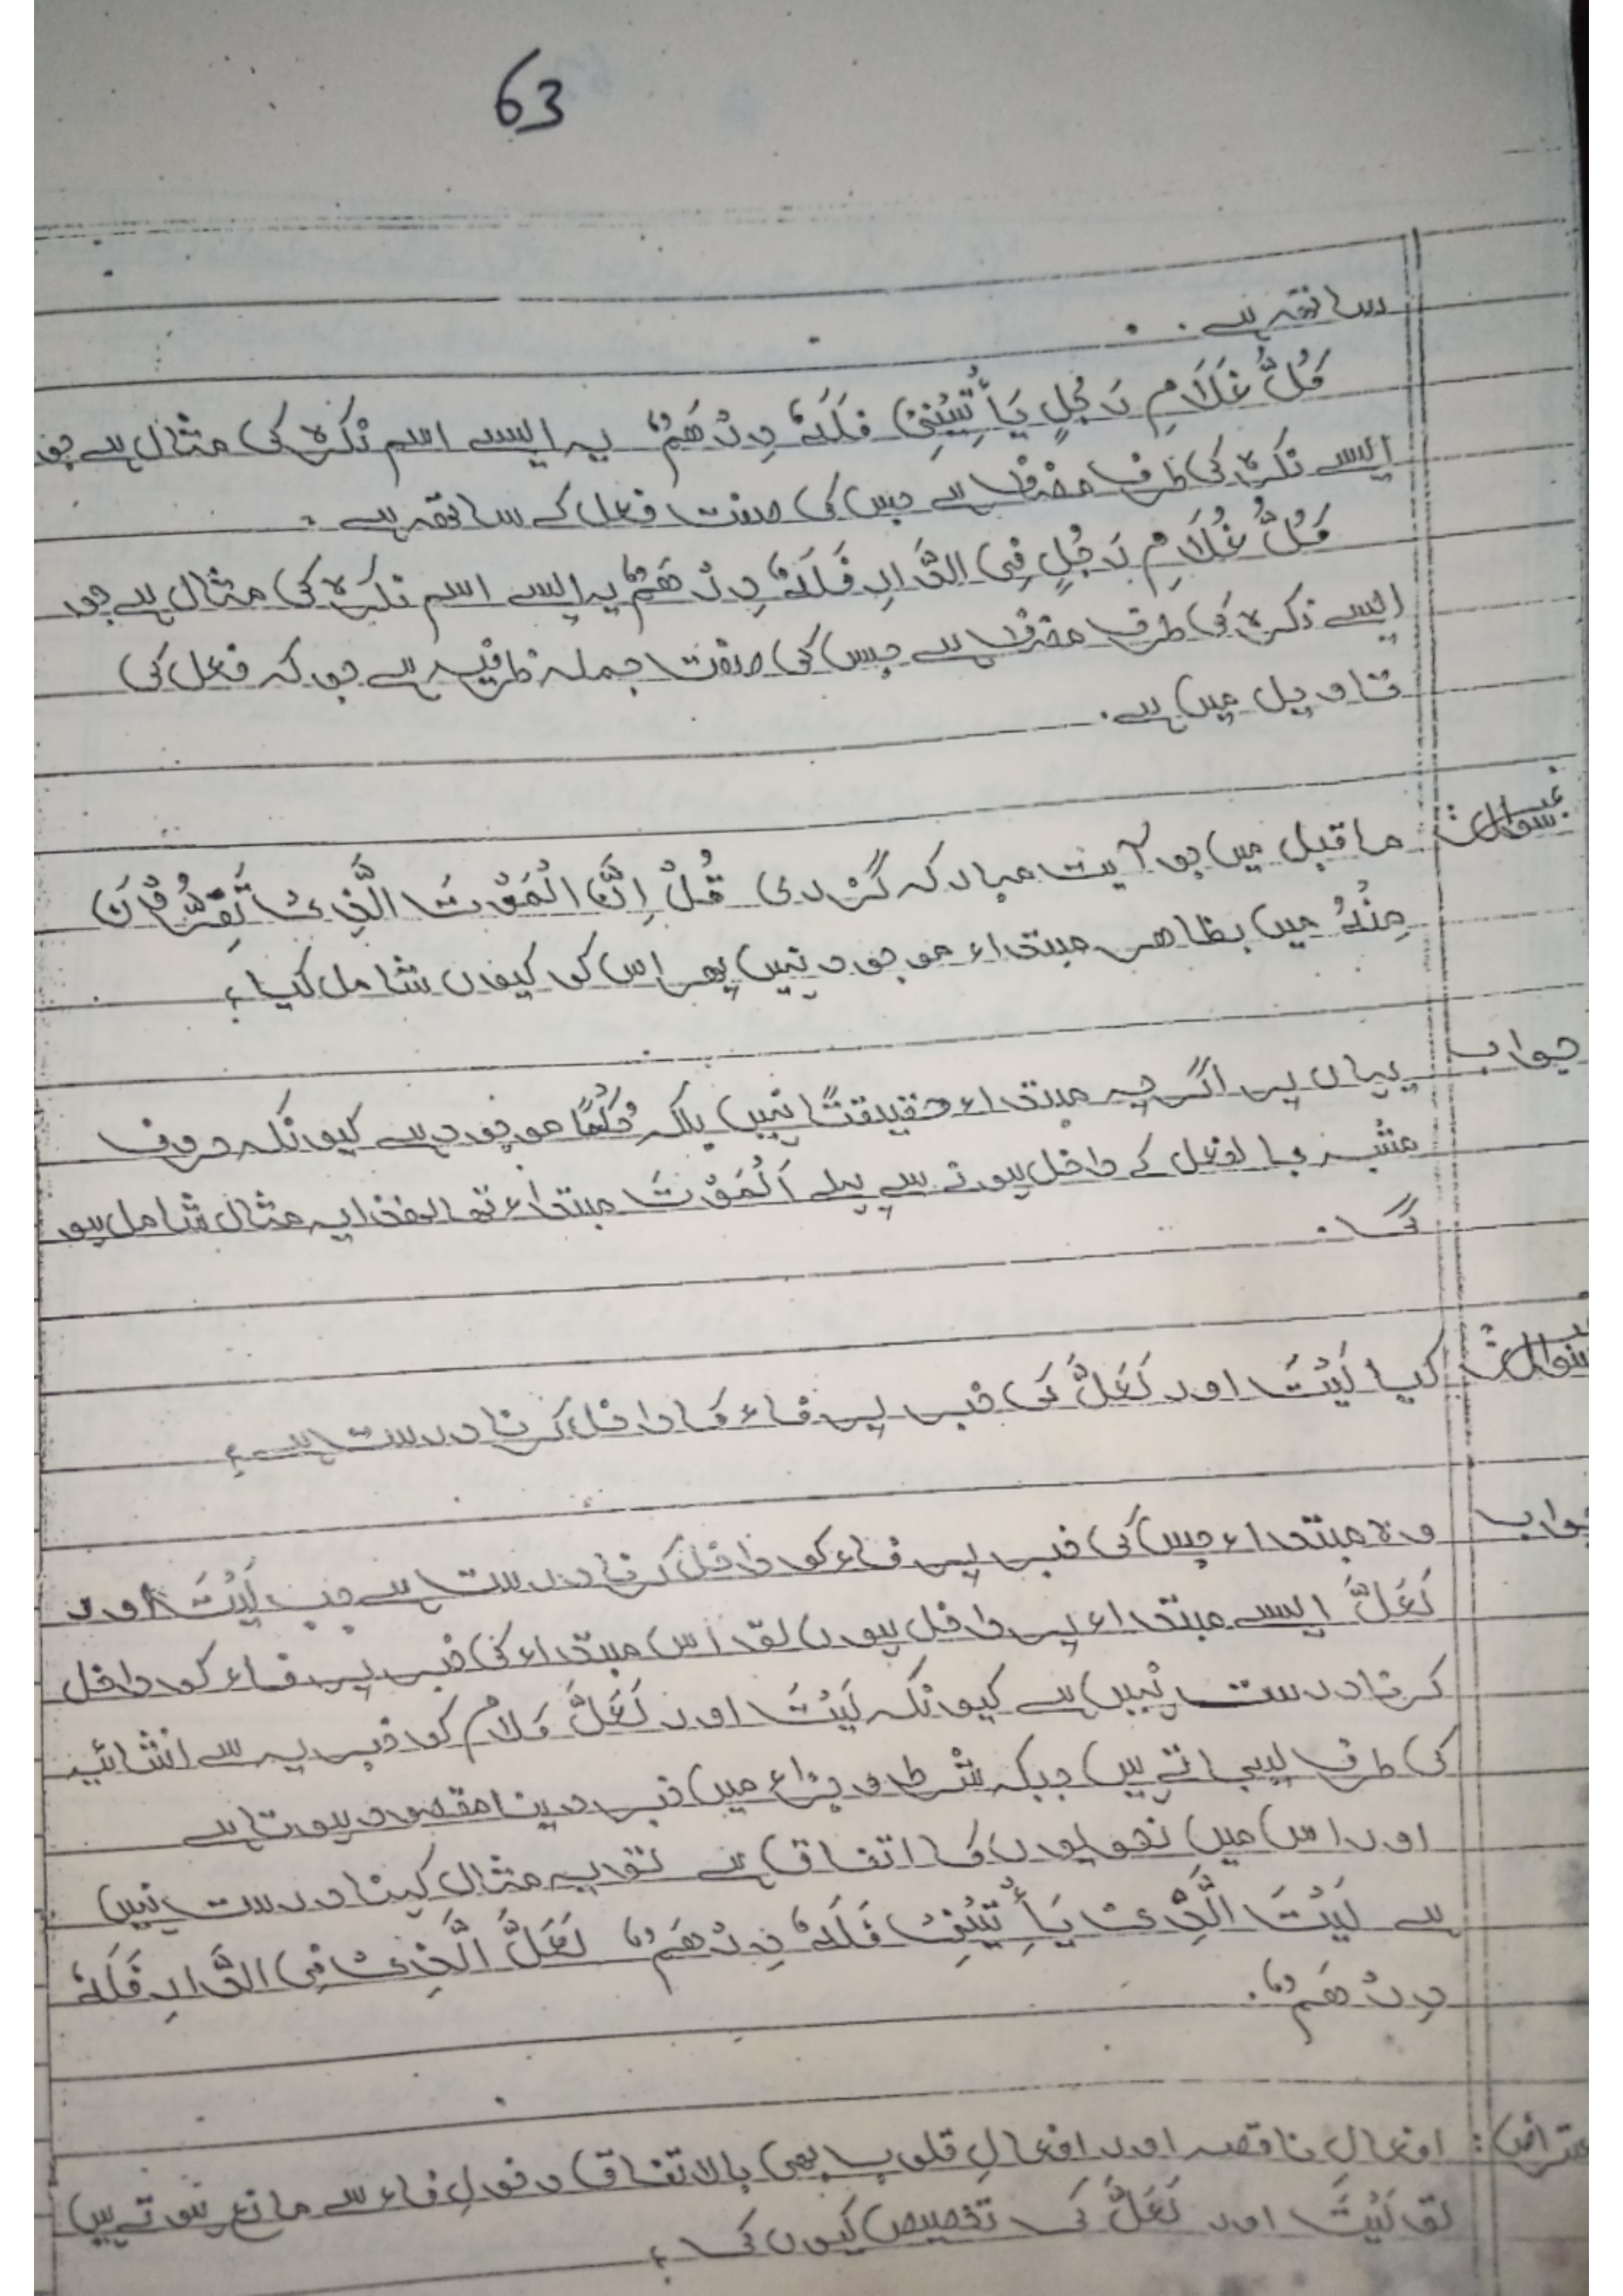 63
ساتھ ہے ۔
كُلُّ غُلَامِ رَجُلٍ يَأْتِيْنِيْ فَلَهٗ دِرْهَمٌ یہ ایسے اسم نکرہ کی مثال ہے جو
ایسے نکرہ کی طرف مضاف ہے جس کی صفت فعل کے ساتھ ہے ۔
كُلُّ غُلَامِ رَجُلٍ فِي الدَّارِ فَلَهٗ دِرْهَمٌ یہ ایسے اسم نکرہ کی مثال ہے جو
ایسے نکرہ کی طرف مضاف ہے جس کی صفت جملہ ظرفیہ ہے جو کہ فعل کی
تاویل میں ہے ۔
سوال: ماقبل میں جو آیت مبارکہ گزری قُلْ اِنَّ الْمَوْتَ الَّذِیْ تَفِرُّوْنَ
مِنْهُ میں بظاھر مبتداء موجود نہیں پھر اس کو کیوں شامل کیا ؟
جواب یہاں پر اگرچہ مبتداء حقیقتًا نہیں بلکہ حُکْمًا موجود ہے کیونکہ حروف
مشبہ بالفعل کے داخل ہونے سے پہلے اَلْمَوْتَ مبتداء تھا لھٰذا یہ مثال شامل ہو
گی ۔
سوال: کیا لَيْتَ اور لَعَلَّ کی خبر پر فاء کا داخل کرنا درست ہے ؟
جواب وہ مبتداء جس کی خبر پر فاء کو داخل کرنا درست ہے جب لَيْتَ اور
لَعَلَّ ایسے مبتداء پر داخل ہوں تو اس مبتداء کی خبر پر فاء کو داخل
کرنا درست نہیں ہے کیونکہ لَيْتَ اور لَعَلَّ کَلام کو خبریہ سے انشائیہ
کی طرف لیجاتے ہیں جبکہ شرط و جزاء میں خبر دینا مقصود ہوتا ہے
اور اس میں نحویوں کا اتفاق ہے تو یہ مثال کہنا درست نہیں
ہے لَيْتَ الَّذِیْ يَأْتِيْنِيْ فَلَهٗ دِرْهَمٌ لَعَلَّ الَّذِیْ فِي الدَّارِ فَلَهٗ
دِرْهَمٌ ۔
اعتراض: افعالِ ناقصہ اور افعالِ قلوب بھی بالاتفاق دخولِ فاء سے مانع ہوتے ہیں
تو لَيْتَ اور لَعَلَّ کی تخصیص کیوں کی ؟